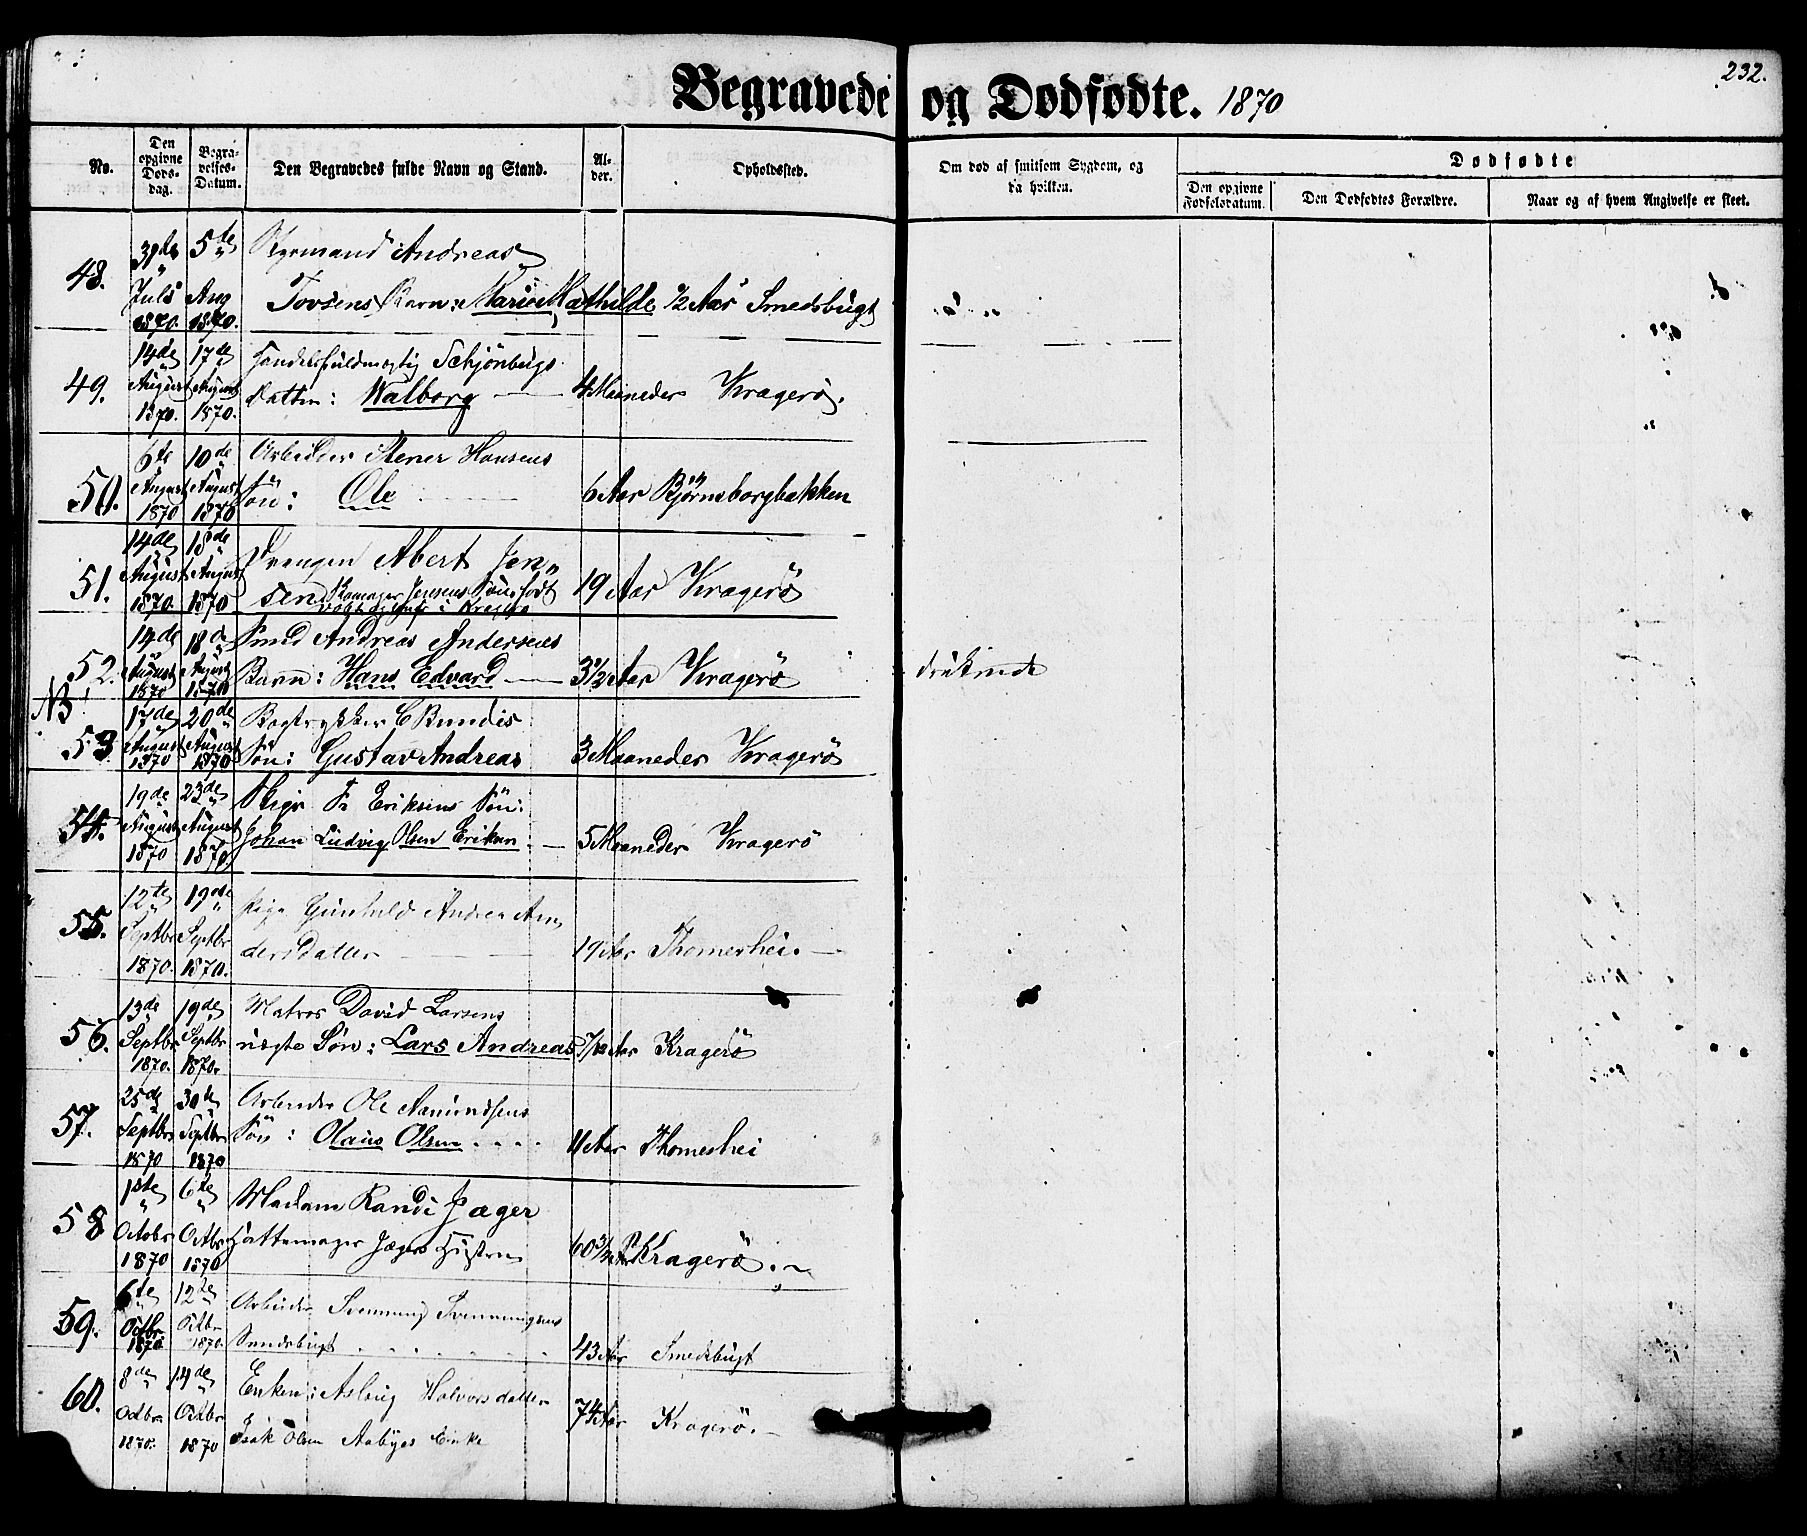 232.
Begravede og Dødfødte. 1870
No.
Den opgivne Døds-dag.
Begra-velses-Datum.
Den Begravedes fulde Navn og Stand.
Al-der.
Opholdssted.
Om død af smitsom Sygdom, og da hvilken.
Dødfødte
Den opgivne Fødselsdatum.
Den Dødfødtes Forældre.
Naar og af hvem Angivelse er skeet.
48. 31te Juli 1870. 5te Aug 1870. Styrmand Andreas
Tovsens Barn: Marie Mathilde 1/2 Aar Smedsbugt
49. 14de August 1870. 17de August 1870. Handelsfuldmægtig Schjönbergs
Datter: Walborg — 4 Maaneder Kragerö.
50. 6te August 1870 10de August 1870 Arbeider Stener Hansens
Sön: Ole 6 Aar Bjørnsborgbakken
51. 14de August 1870. 18de August 1870 Drengen Abert Jen-
sen Jensens Sön, født 19 Aar Kragerö
i Kragerö
52. 14de August 1870 18de August 1870 Smed Andreas Andersens
Barn: Hans Edvard — 3 1/2 Aar Kragerö
NB
53 17de August 1870 20de August 1870 Bogtrykker C Bundis
Sön: Gustav Andreas 3 Maaneder Kragerö
54. 19de August 1870 23de August 1870. Fr Eriksens Sön:
Johan Ludvig Olsen Eriksen. — 5 Maaneder Kragerö
55. 12te Septbr 1870. 19de Septbr 1870. Pige Gunhild Andrea An-
dersdatter 19 Aar Thomeshei. —
56. 13de Septbr 1870. 19de Septbr 1870. Matros David Larsens
uægte Søn: Lars Andreas 7/12 Aar Kragerö
57. 25de Septbr 1870 30te Septbr 1870 Arbeider Ole Aamundsens
Sön: Olaus Olsen 4 Aar Thomeshei
58 1ste Octobr 1870 6te Octbr 1870 Madam Randi Jæger
Hattemager Jægers Hustru 60 3/4 Aar Kragerö.
59. 6te Octbr 1870 12te Octbr 1870. Arbeider Svennung Svennungsens
Smedsbugt 43 Aar Smedsbugt
60. 8de Octbr 1870. 14de Octbr 1870 Enken: Aslaug Halvorsdatter
Isak Olsen Aabyes Enke 74 Aar Kragerö. —